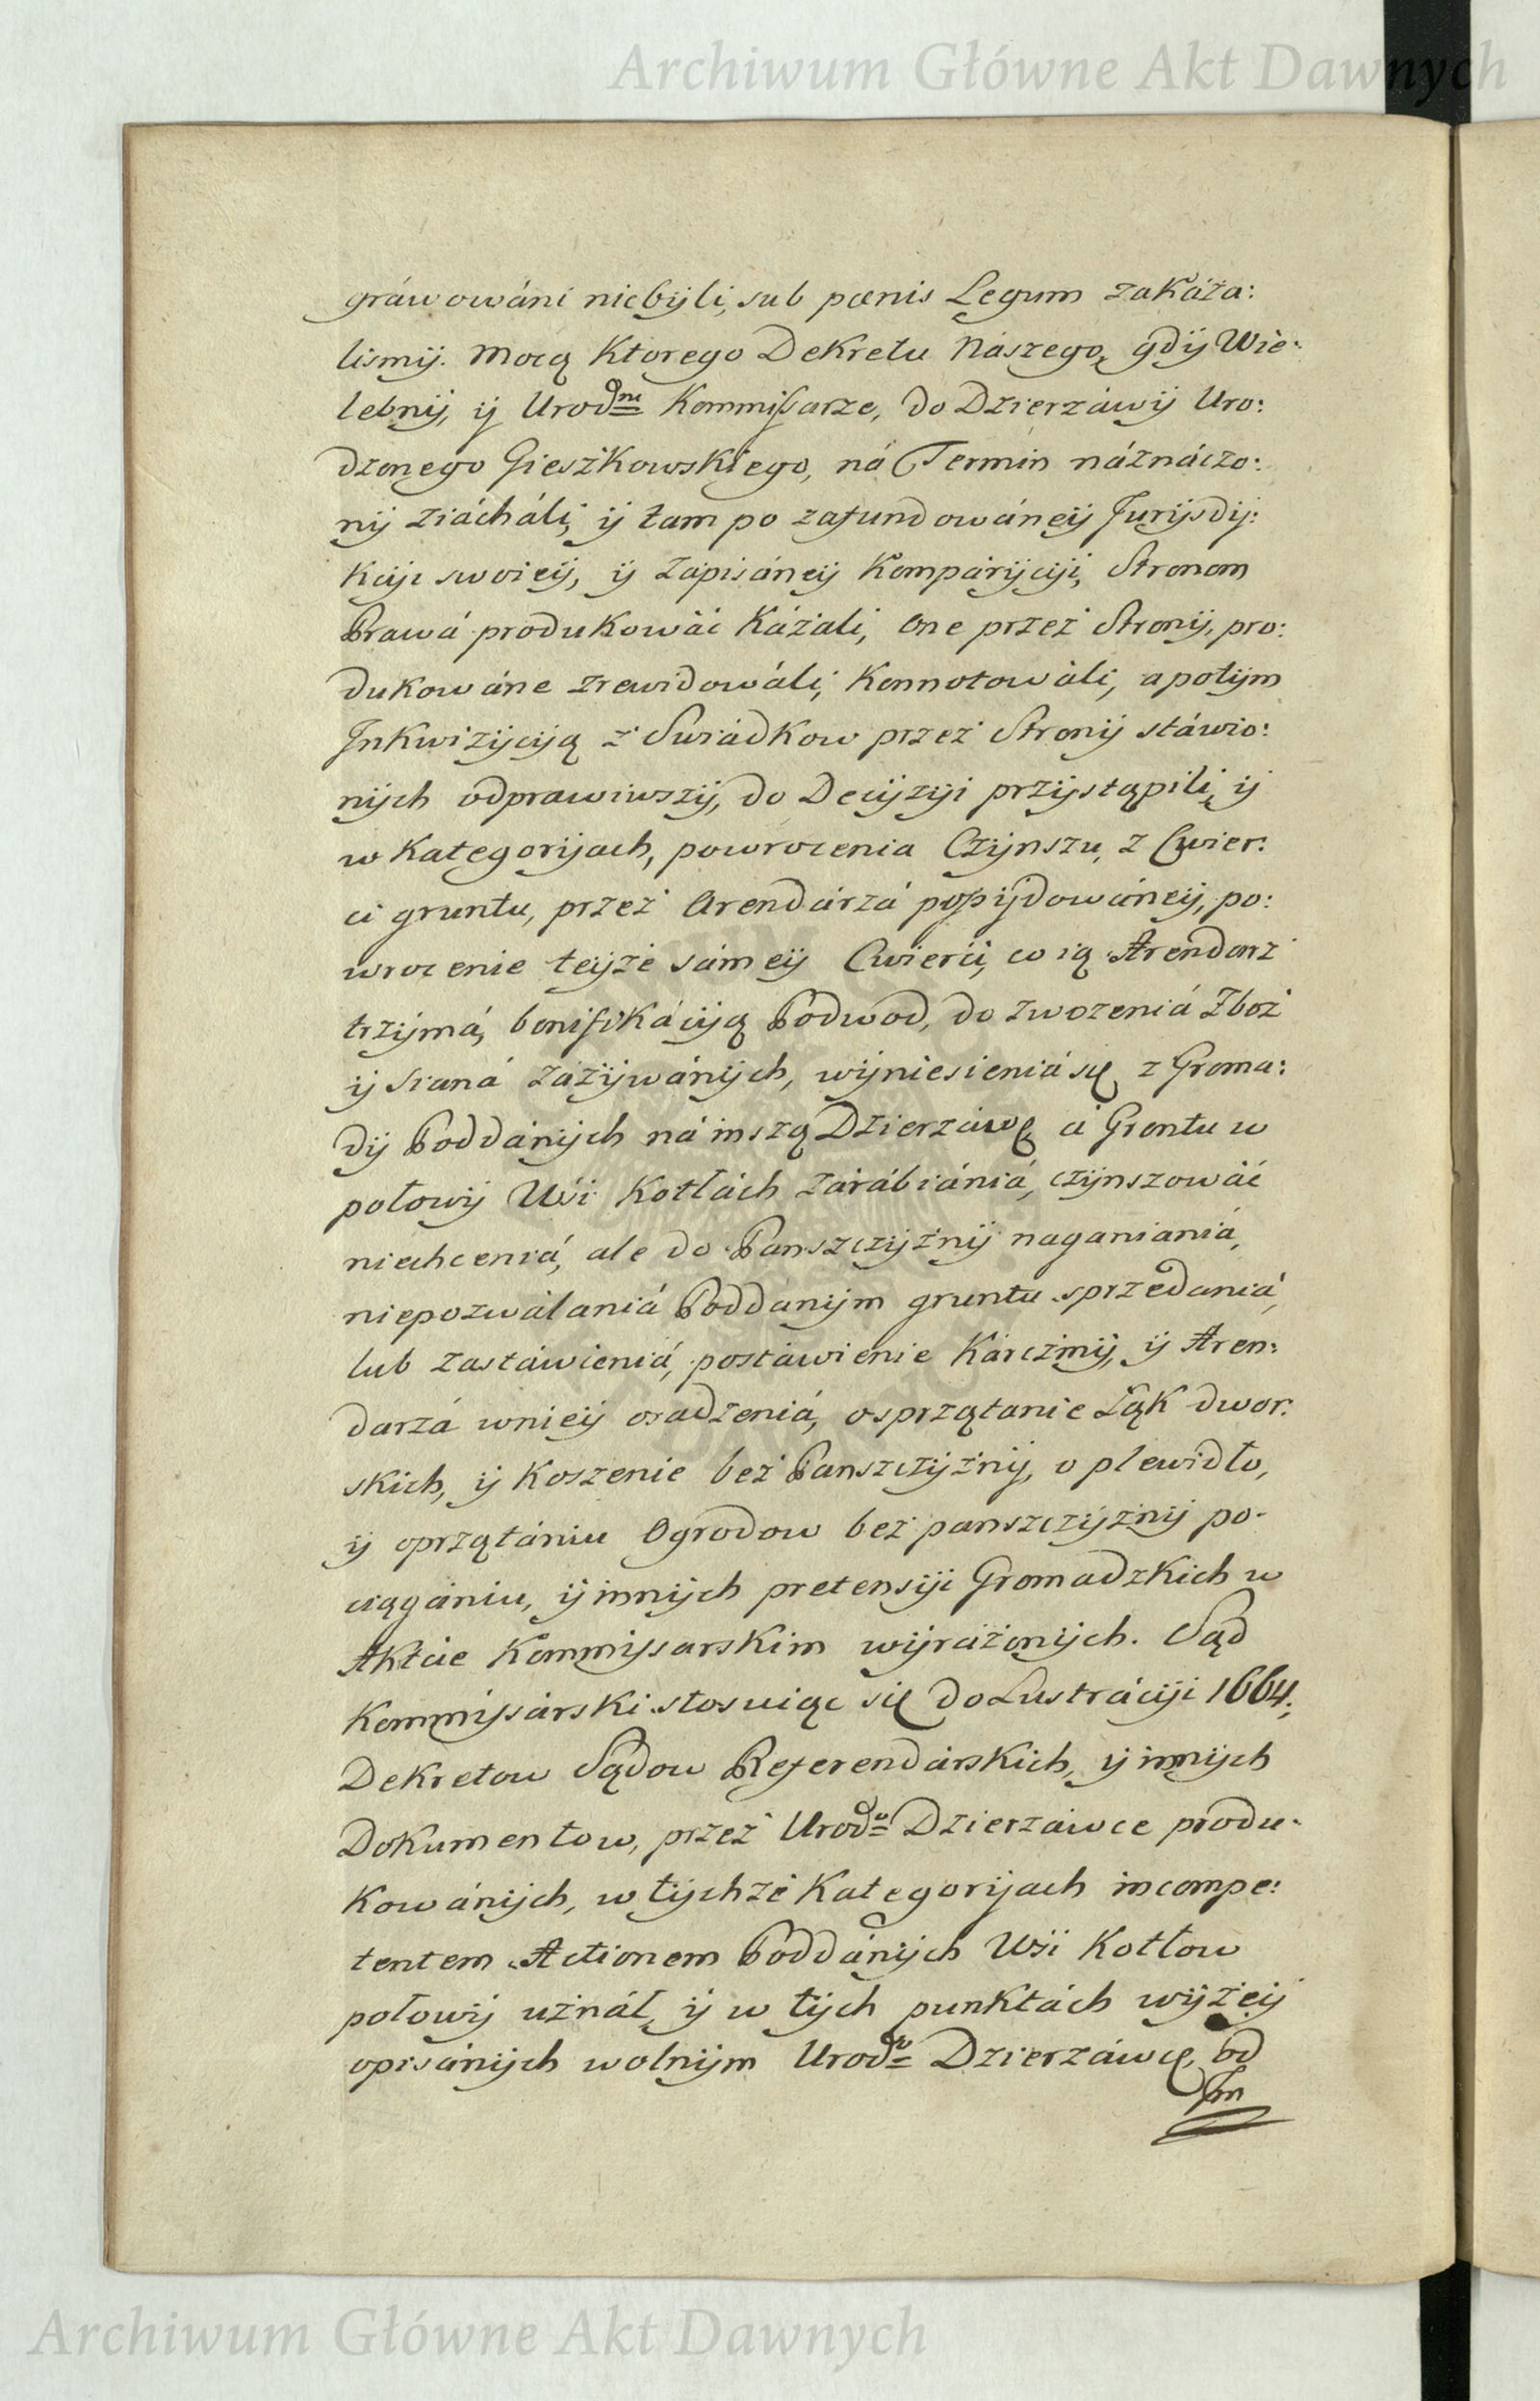 Archiwum Główne Akt Dawnych
gráwowáni niebyli, sub pœnis Legum zakáza:
lismÿ. Mocą Ktorego Dekretu Nászego, gdÿ Wie:
lebnÿ, ÿ Urodne Kommissarze, do Dzierzáwÿ Uro:
dzonego Gieszkowskiego, ná Termin náznáczo:
nÿ ziácháli, ÿ tam po zafundowáneÿ Jurÿsdÿ:
kcÿi swoieÿ, ÿ zápisáneÿ Kompárÿcÿi, Stronom
Prawá produkowáć kázali, One przez Stronÿ, pro:
dukowáne zrewidowáli, konnotowáli, a potÿm
Inkwizÿcÿą z Swiádkow przez Stronÿ stáwio:
nÿch odprawiwszÿ, do Decÿzÿi przÿstąpili, ÿ
w Kategorÿach, powrocenia Czÿnszu, z Cwier:
ci gruntu, przez Arendárzá possÿdowáneÿ, po:
wrocenie teÿże sámeÿ Cwierci, co ią Arendarz
trzÿmá, bonifikácÿą Podwod, do zwozeniá Zboż
ÿ Sianá zażÿwánÿch, wÿniesieniá się z Groma:
dÿ Poddánÿch ná inszą Dzierzáwę á Gruntu w
połowÿ Wśi Kotłách zarábiániá, czÿnszowáć
niechceniá, ale do Panszczÿznÿ naganianiá,
niepozwalaniá Poddánÿm gruntu sprzedaniá,
lub zastáwieniá, postáwienie Kárczmÿ, ÿ Aren:
darzá wnieÿ osadzeniá, osprzątanie Łąk dwor:
skich, ÿ Koszenie bez Panszczÿznÿ, o plewidło,
ÿ oprzątániu Ogrodow bez panszczÿznÿ po:
ciągániu, ÿ innÿch pretensÿi Gromadzkich w
Akcie Kommissarskim wÿrażonÿch. Sąd
Kommissárski stosuiąc się do Lustrácÿi 1664.
Dekretow Sądow Referendárskich, ÿ innÿch
Dokumentow, przez Urodo Dzierzáwce produ:
kowánÿch, w tÿchże Kategorÿach incompe:
tentem Actionem Poddánÿch Wśi Kotłow
połowÿ uznáł, ÿ w tÿch punktách wÿżeÿ
opisánÿch wolnÿm Urodo Dzierzáwcę, od
Im
Archiwum Główne Akt Dawnych